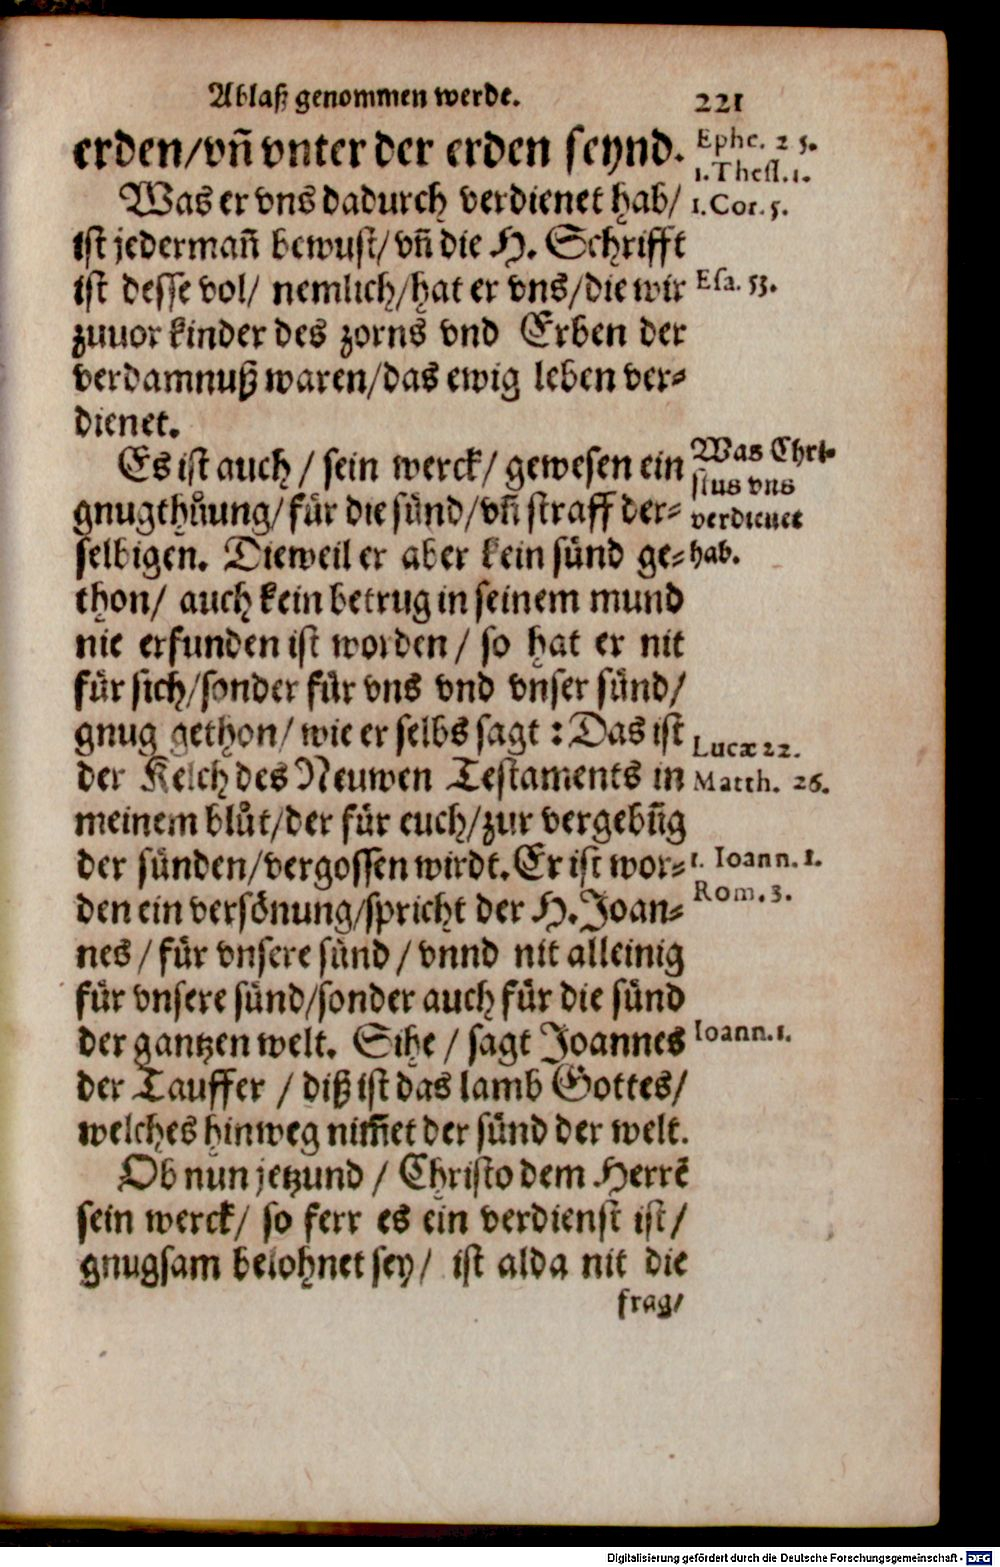 Ablaß genommen werde. 221
erden/vñ vnter der erden seynd.
Ephe. 2 5.
1.Thess.1.
1.Cor.5.
Was er vns dadurch verdienet hab/
ist jedermañ bewust/vñ die H. Schrifft
ist desse vol/ nemlich/hat er vns/die wir
Esa. 53.
zuuor kinder des zorns vnd Erben der
verdamnuß waren/das ewig leben ver-
dienet.
Es ist auch / sein werck/ gewesen ein
Was Chri-
stus vns
verdienet
hab.
gnugthůung/für die sünd/vñ straff der-
selbigen. Dieweil er aber kein sünd ge-
thon/ auch kein betrug in seinem mund
nie erfunden ist worden / so hat er nit
für sich/sonder für vns vnd vnser sünd/
gnug gethon/ wie er selbs sagt : Das ist
Lucæ 22.
der Kelch des Neuwen Testaments in
Matth. 26.
meinem blůt/der für euch/zur vergebũg
der sünden/vergossen wirdt. Er ist wor-
1. Ioann. 1.
Rom. 3.
den ein versönung/spricht der H. Joan-
nes / für vnsere sünd / vnnd nit alleinig
für vnsere sünd/sonder auch für die sünd
der gantzen welt. Sihe / sagt Joannes
Ioann.1.
der Tauffer / diß ist das lamb Gottes/
welches hinweg nim̃et der sünd der welt.
Ob nun jetzund / Christo dem Herrẽ
sein werck/ so ferr es ein verdienst ist/
gnugsam belohnet sey/ ist alda nit die
frag/
Digitalisierung gefördert durch die Deutsche Forschungsgemeinschaft - DFG